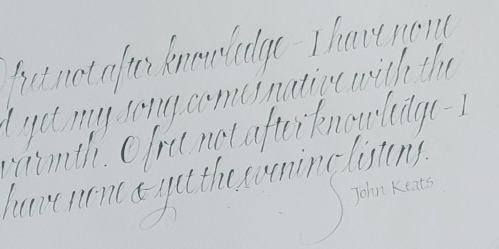 O fret not after knowledge - I have none
yet my song comes native with the
warmth. O fret not after knowledge - I
have none & yet the evening listens.
John Keats